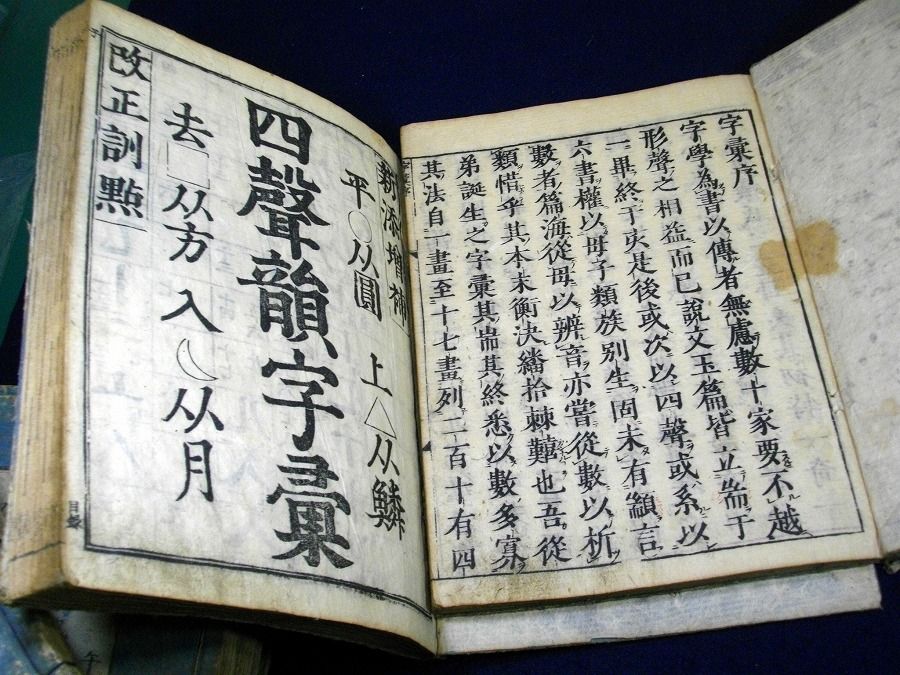 字彙序
字學為書以傳者無慮數十家要不越
形聲之相益而已說文玉篇皆立耑于
一畢終于亥是後或次以四聲或系以
六書權以母子類族別生固未有顓言
數者篇海從母以辨音亦嘗從數以析
類惜乎其本末衡決繙拾棘囏也吾從
弟誕生之字彙其耑其終悉以數多寡
其法自一畫至十七畫列二百十有四
新添增補
平○从圓 上△从鱗
四聲韻字彙
去□从方 入☾从月
改正訓點
目錄